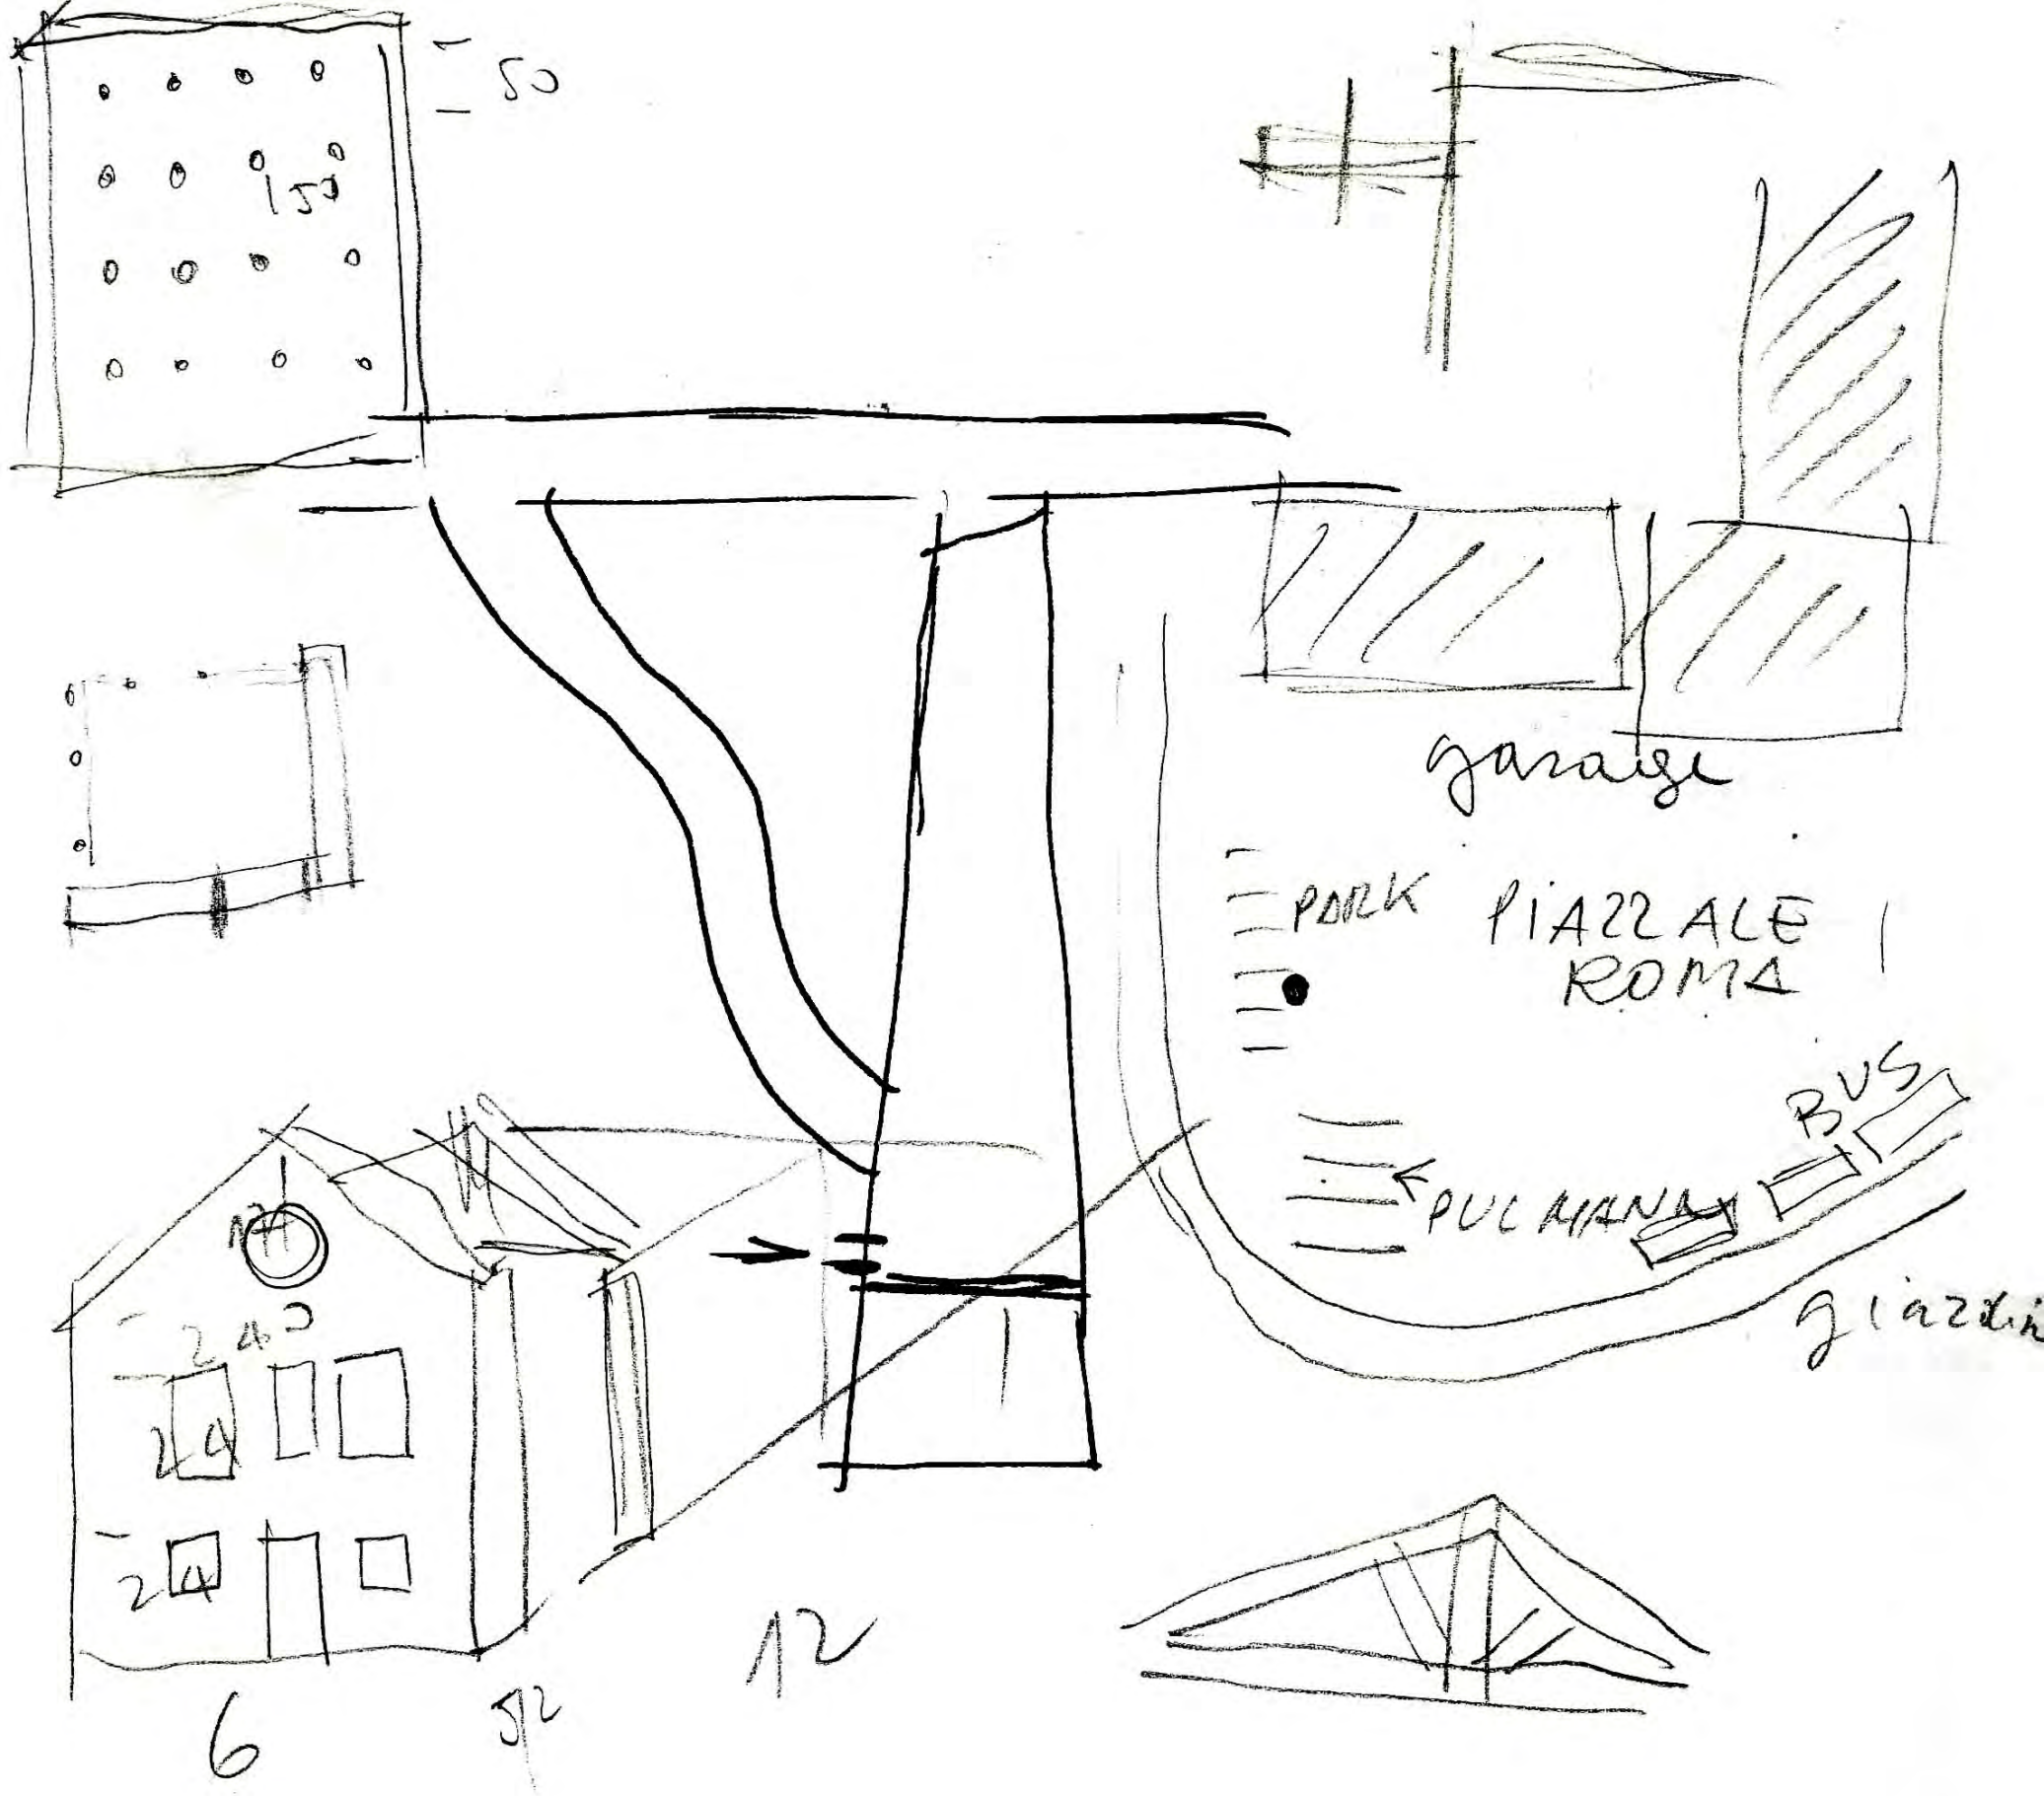 50
150
garage
PARK
PIAZZALE
ROMA
BUS
PULMANN
giardin
240
24
24
12
6